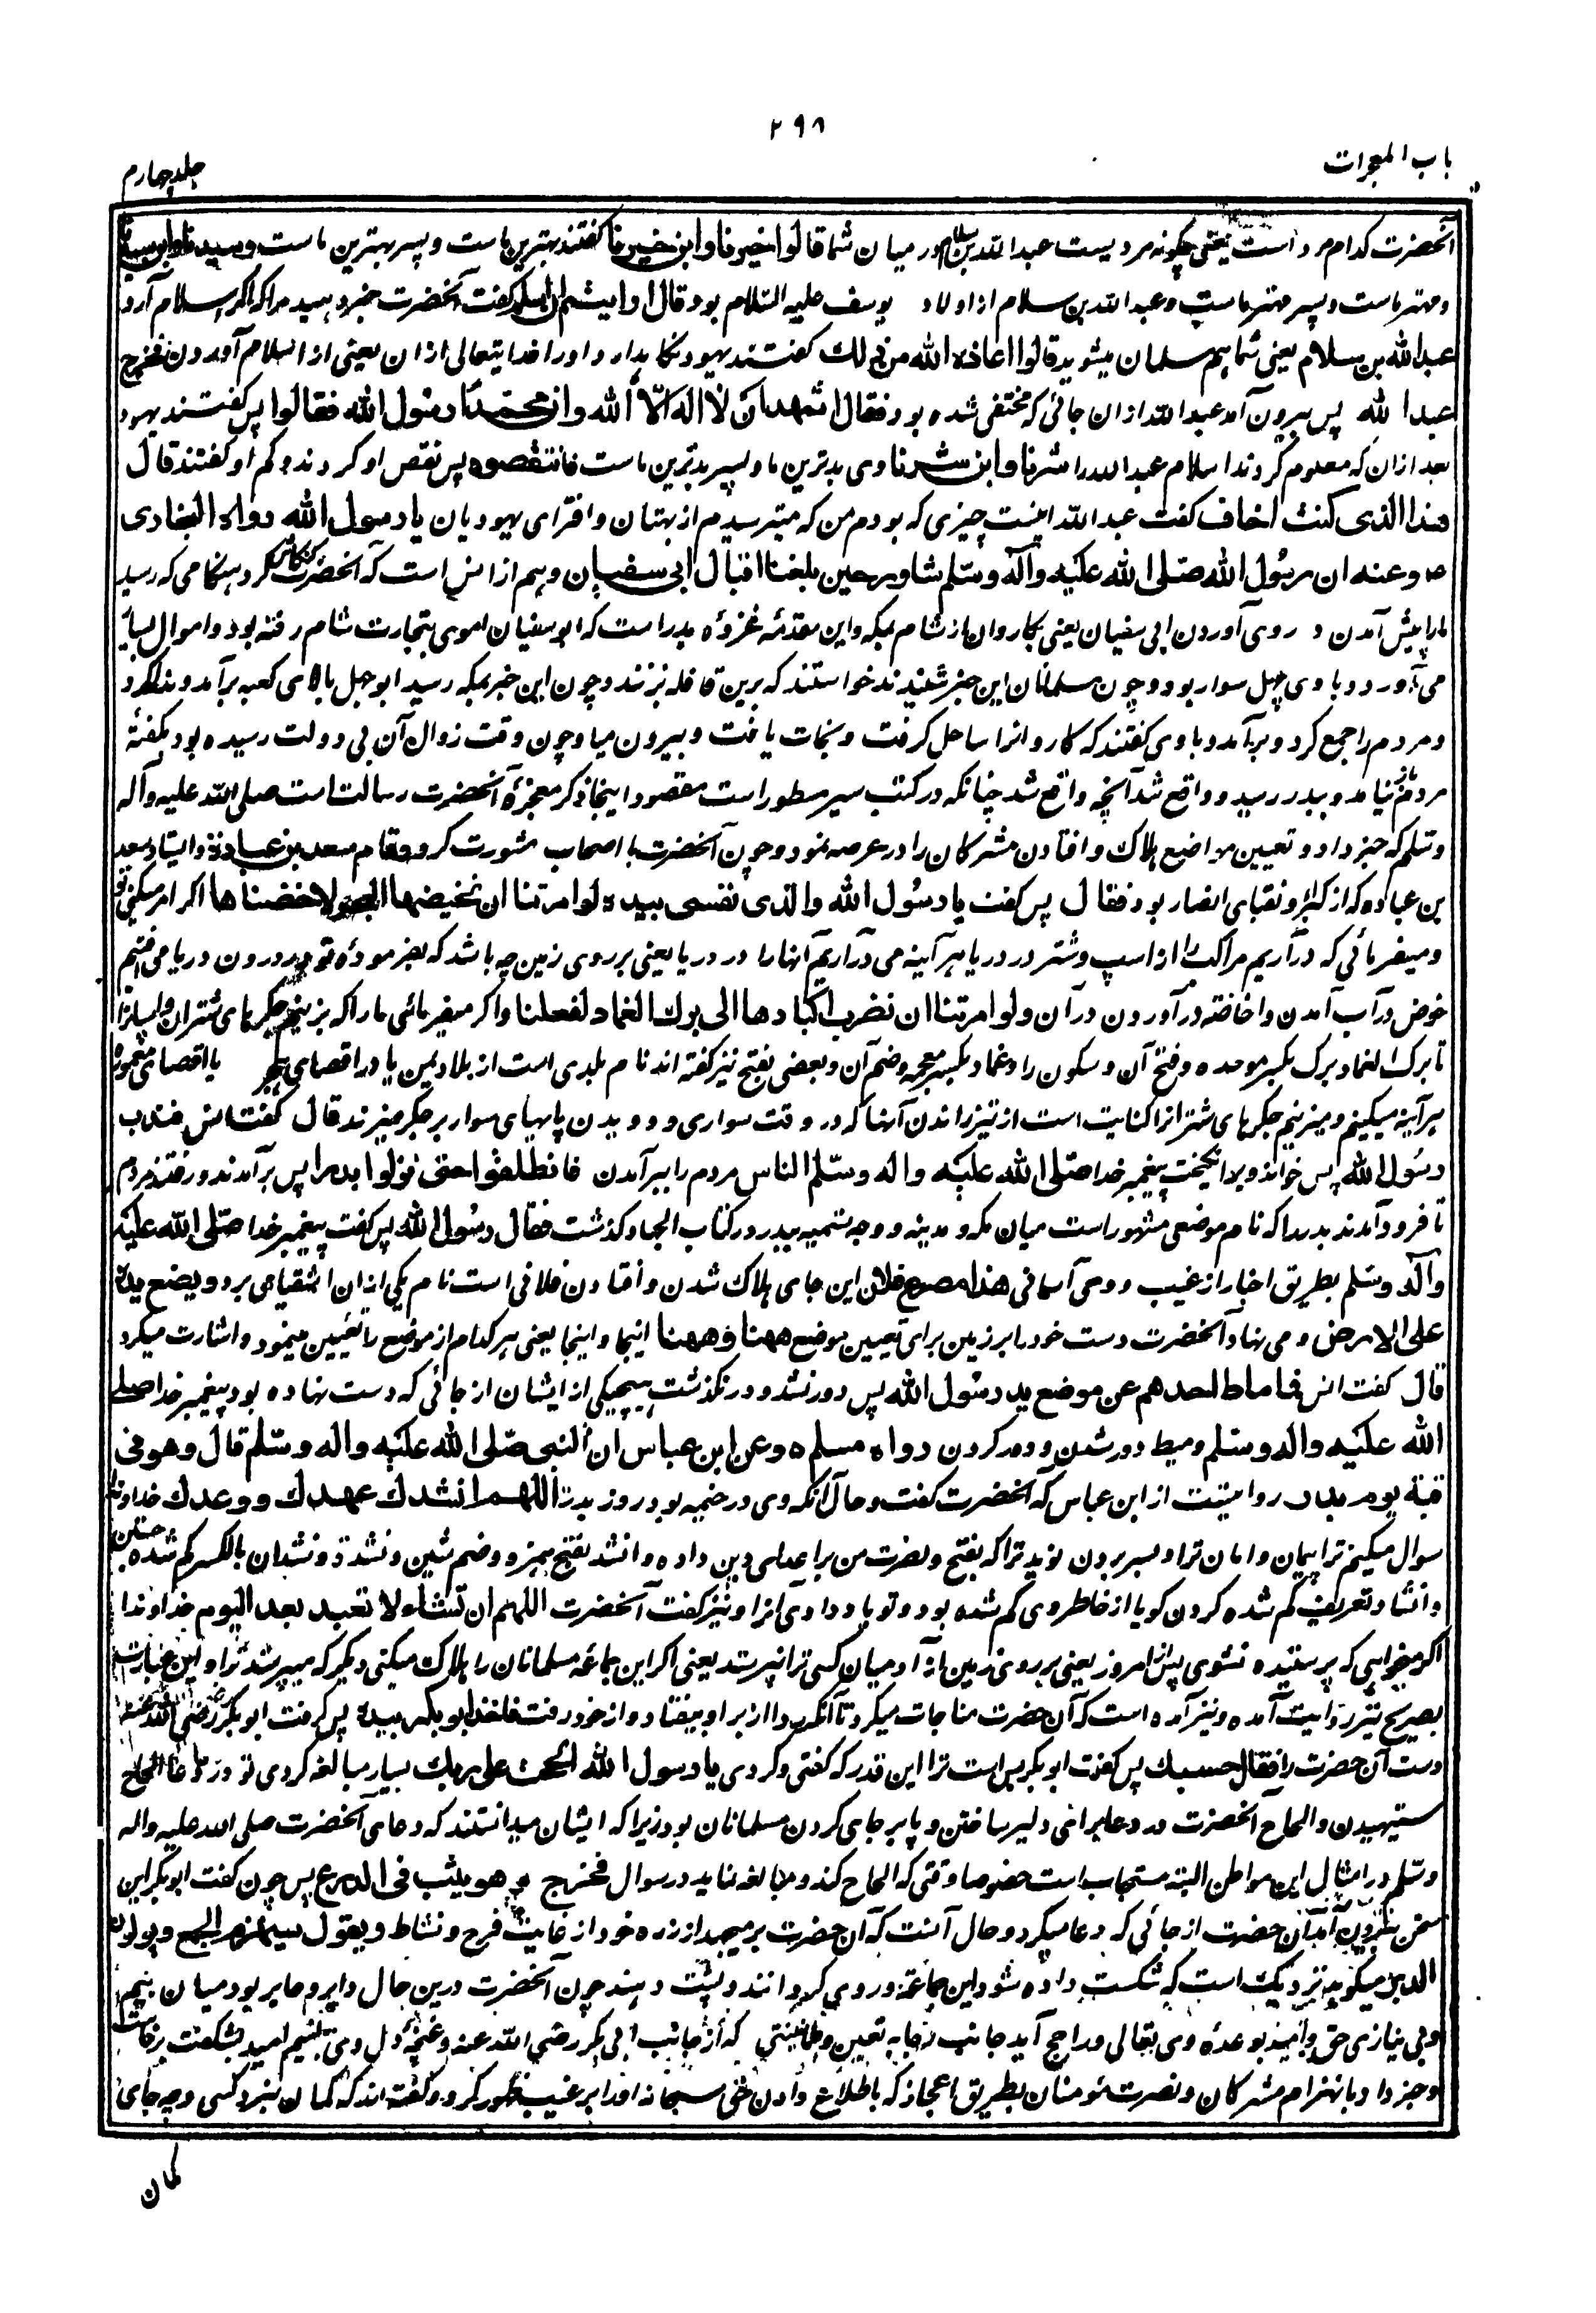 ۲۹۸
باب المعجزات
جلد چهارم
آنحضرت کدام مرد است یعنی چگونه مردیست عبدالله بن سلام در میان شما قالوا خیرنا وابن خیرنا گفتند بهترین ماست و پسر بهترین ماست وسیدنا وابن سیدنا
ومهتر ماست و پسر مهتر ماست وعبدالله بن سلام از اولاد یوسف علیه السلام بود قال ارایتم ان اسلم گفت آنحضرت خبر دهید مرا که اگر اسلام آرد
عبدالله بن سلام یعنی شما هم مسلمان میشوید قالوا اعاذه الله من ذلک گفتند یهود نگاه دارد او را خدایتعالی ازان یعنی از اسلام آوردن فخرج
عبدالله پس بیرون آمد عبدالله ازان جائی که مختفی شده بود فقال اشهد ان لا اله الا الله وان محمدا رسول الله فقالوا پس گفتند یهود
بعد ازان که معلوم کردند اسلام عبدالله را شرنا وابن شرنا وی بدترین ما و پسر بدترین ماست فانتقصوه پس نقص او کردند و کم او گفتند قال
هذا الذی کنت اخاف گفت عبدالله اینست چیزی که بودم من که میترسیدم از بهتان و افترای یهودیان یا رسول الله رواه البخاری
ه وعنه ان رسول الله صلی الله علیه وآله وسلم شاور حین بلغنا اقبال ابی سفیان وهم از انس است که آنحضرت کنگاش کرد هنگامی که رسید
ما را پیش آمدن و روی آوردن ابی سفیان یعنی بکاروان از شام بمکه واین مقدمه غزوه بدر است که ابوسفیان اموی بتجارت شام رفته بود و اموال بسیار
می آورد و باوی چهل سوار بود و چون مسلمانان این خبر شنیدند خواستند که برین قافله بزنند و چون این خبر بمکه رسید ابوجهل بالای کعبه برآمد و ندا کرد
ومردم را جمع کرد و برآمد و باوی گفتند که کاروانرا ساحل گرفت و نجات یافت و بیرون میا و چون وقت زوال آن بی دولت رسیده بود بگفته
مردم باز نیامد و ببدر رسید و واقع شد آنچه واقع شد چنانکه در کتب سیر مسطور است مقصود اینجا ذکر معجزه آنحضرت رسالت است صلی الله علیه وآله
وسلم که خبر داد و تعیین مواضع هلاک و افتادن مشرکان را در عرصه نمود و چون آنحضرت با اصحاب مشورت کرد وقام سعد بن عبادة وایستاد سعد
بن عباده که از کبرا و نقبای انصار بود فقال پس گفت یا رسول الله والذی نفسی بیده لو امرتنا ان نخیضها البحر لاخضناها اگر امر میکنی تو
ومیفرمائی که درآریم مراکب را از اسپ و شتر در دریا هر آینه می درآریم آنها را در دریا یعنی بر روی زمین چه باشد که بفرموده تو در درون دریا می افتیم
خوض درآب آمدن واخاضه درآوردن درآن ولو امرتنا ان نضرب اکبادها الی برک الغماد لفعلنا و اگر میفرمائی ما را که بزنیم جگرهای شتران و اسپانرا
تا برک الغماد برک بکسر موحده وفتح آن و سکون را و غماد بکسر معجمه وضم آن و بعضی بفتح نیز گفته اند نام بلدی است از بلاد یمن یا در اقصای هجر یا اقصای معموره
هر آینه میکنیم و میزنیم جگرهای شترانرا کنایت است از تیز راندن آنها که در وقت سواری و دویدن پایهای سوار بر جگر میزند قال گفت انس فندب
رسول الله پس خواند و برانگیخت پیغمبر خدا صلی الله علیه واله وسلم الناس مردم را ببرآمدن فانطلقوا حتی نزلوا بدرا پس برآمدند و رفتند مردم
تا فرود آمدند بدر را که نام موضعی مشهور است میان مکه و مدینه و وجه تسمیه ببدر در کتاب الجهاد گذشت فقال رسول الله پس گفت پیغمبر خدا صلی الله علیه
وآله وسلم بطریق اخبار از غیب و وحی آسمانی هذا مصرع فلان این جای هلاک شدن و افتادن فلانی است نام یکی ازان اشقیا می برد ویضع یده
علی الارض و می نهاد آنحضرت دست خود را بر زمین برای تعیین موضع ههنا وههنا اینجا و اینجا یعنی هر کدام از موضع را تعیین مینمود و اشارت میکرد
قال گفت انس فما ماط احدهم عن موضع ید رسول الله پس دور نشد و در نگذشت هیچیکی از ایشان از جائی که دست نهاده بود پیغمبر خدا صلی
الله علیه واله وسلم ومیط دور شدن ودور کردن رواه مسلم ه وعن ابن عباس ان النبی صلی الله علیه واله وسلم قال وهو فی
قبة یوم بدر روایتست از ابن عباس که آنحضرت گفت و حال آنکه وی در خیمه بود روز بدر اللهم انشدک عهدک ووعدک خداوندا
سوال میکنم ترا پیمان و امان ترا و بسر بردن نوید ترا که بفتح و نصرت من بر اعدای دین داده وانشد بفتح همزه وضم شین ونشدة ونشدان بالکسر گم شده جستن
وانشاد تعریف گم شده کردن گویا از خاطر وی گم شده بود و تو یاد دادی آنرا ونیز گفت آنحضرت اللهم ان تشاء لا تعبد بعد الیوم خداوندا
اگر میخواهی که پرستیده نشوی پس از امروز یعنی بر روی زمین از آدمیان کسی ترا نپرستد یعنی اگر این جماعه مسلمانان را هلاک میکنی دیگر که میپرستد ترا و این عبارت
بصریح نیز روایت آمده ونیز آمده است که آن حضرت مناجات میکرد تا آنکه ردا از بر او بیفتاد و از خود رفت فاخذ ابو بکر بیده پس گرفت ابوبکر رضی الله عنه
دست آن حضرت را فقال حسبک پس گفت ابوبکر بس است ترا این قدر که گفتی و کردی یا رسول الله الححت علی ربک بسیار مبالغه کردی تو در دعا الحاح
ستیهیدن والحاح آنحضرت در دعا برای دلیر ساختن و پابرجای کردن مسلمانان بود زیرا که ایشان میدانستند که دعای آنحضرت صلی الله علیه واله
وسلم در امثال این مواطن البته مستجاب است خصوصا وقتی که الحاح کند و مبالغه نماید در سوال فخرج وهو یثب فی الدرع پس چون گفت ابوبکر این
سخن بیرون آمد آن حضرت از جائی که دعا میکرد و حال آنست که آن حضرت برمیجهد از زره خود از غایت فرح و نشاط ویقول سیهزم الجمع ویولون
الدبر میگوید نزدیک است که شکست داده شود این جماعه و روی گردانند و پشت دهند چون آنحضرت درین حال دایر و حایر بود میان بیم
وبی نیازی حق و امید بوعده وی تعالی و راجح آید جانب رجا به تعین و طمانینتی که از جانب ابی بکر رضی الله عنه وغنچه دل وی بنسیم امید بشگفت برخاست
وخبر داد بانهزام مشرکان و نصرت مومنان بطریق اعجاز که باطلاع دادن حق سبحانه او را بر غیب ظهور کرد و گفته اند که گمان نبرد کسی وچه جای
گمان